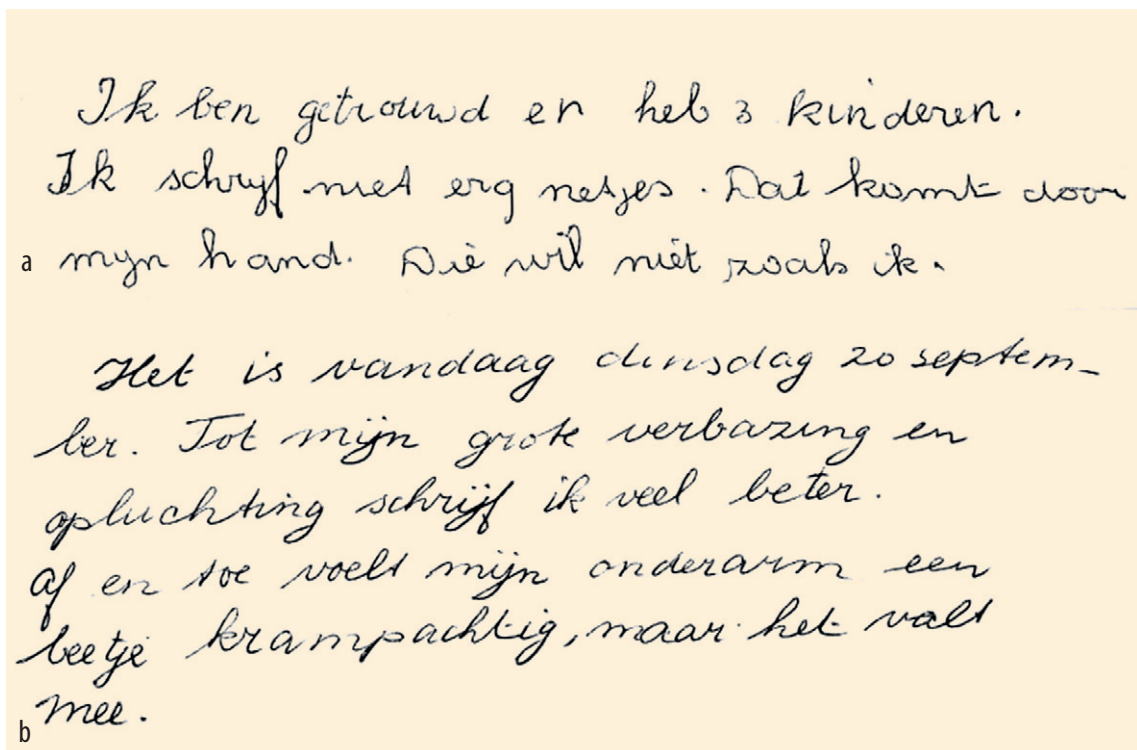 Ik ben getrouwd en heb 3 kinderen.
Ik schrijf niet erg netjes. Dat komt door
a mijn hand. Die wil niet zoals ik.
Het is vandaag dinsdag 20 septem-
ber. Tot mijn grote verbazing en
opluchting schrijf ik veel beter.
Af en toe voelt mijn onderarm een
beetje krampachtig, maar het valt
b mee.